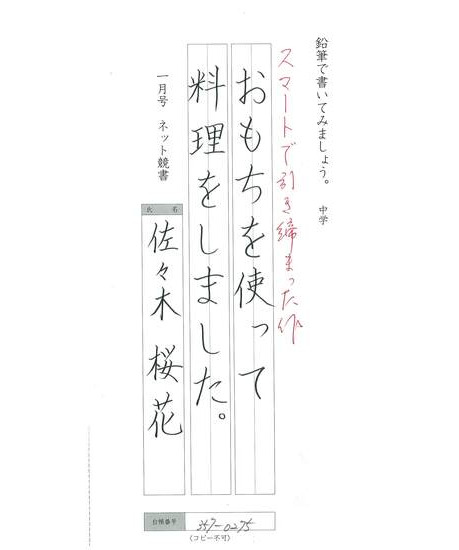 鉛筆で書いてみましょう。 中学
スマートで引き締まった作
おもちを使って
料理をしました。
一月号 ネット競書
氏名
佐々木 桜花
台帳番号
357-0275
(コピー不可)